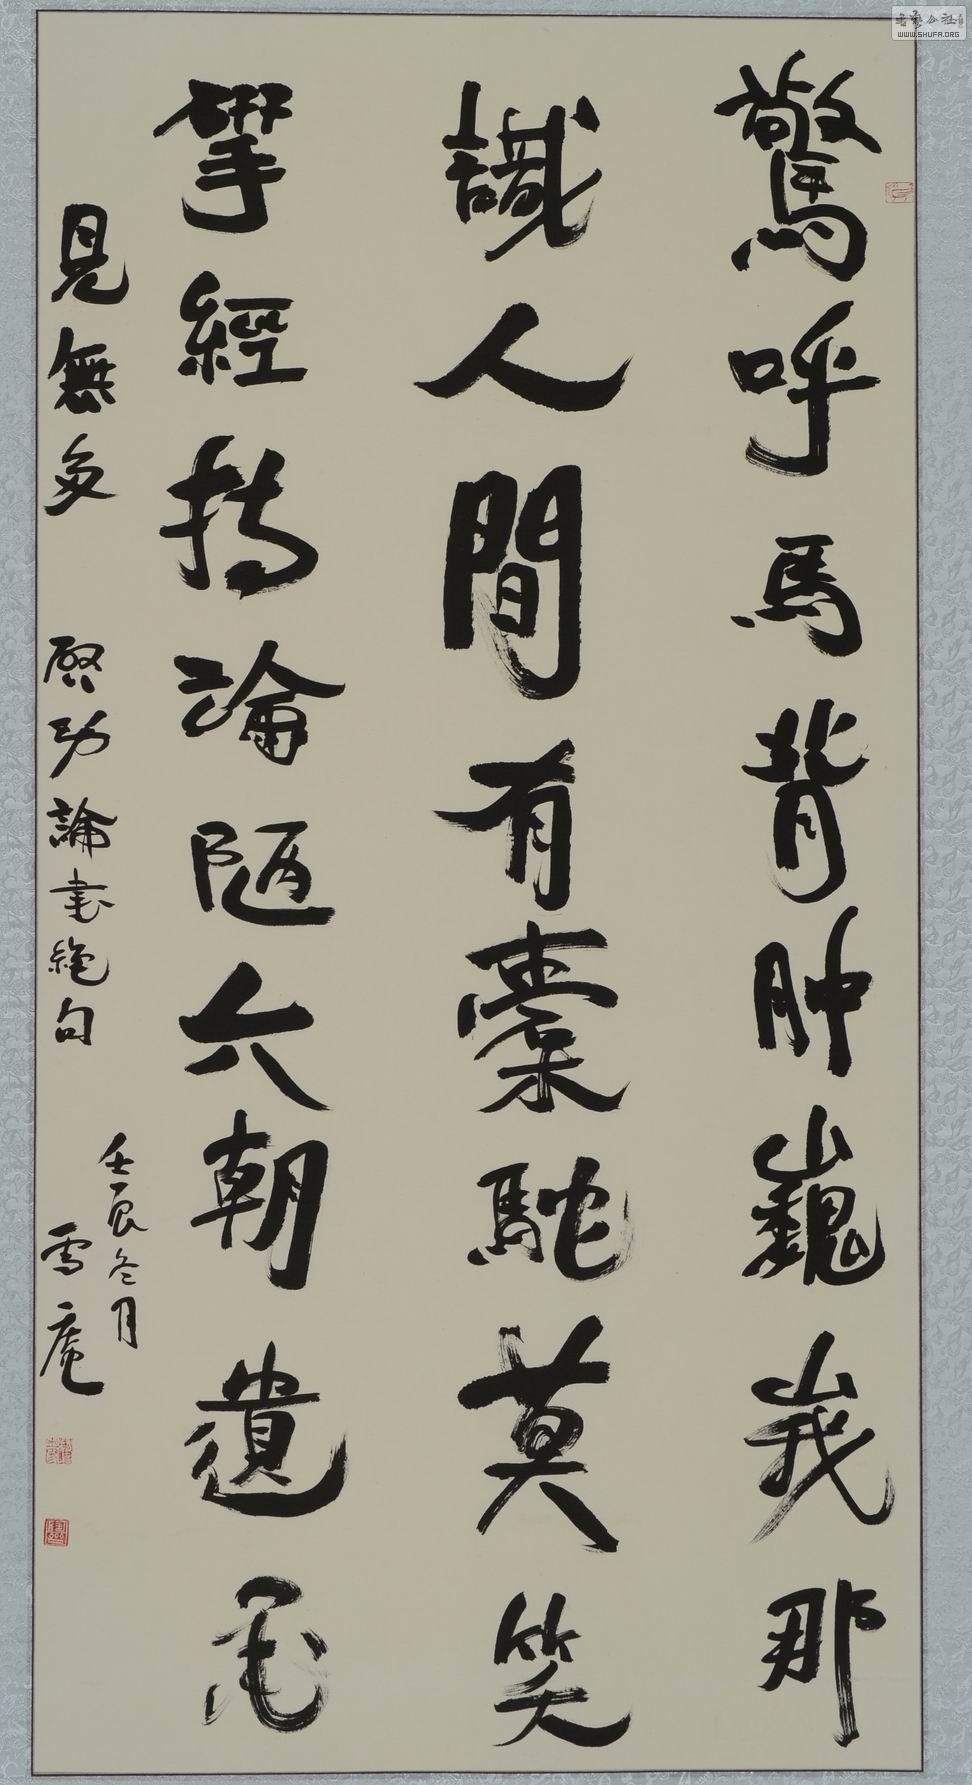 驚呼馬背肿巍峩那
識人間有橐駝莫笑
揅經持論陋六朝遺墨
見無多 啓功論書絕句
壬辰冬月
雪庵
WWW.SHUFA.ORG